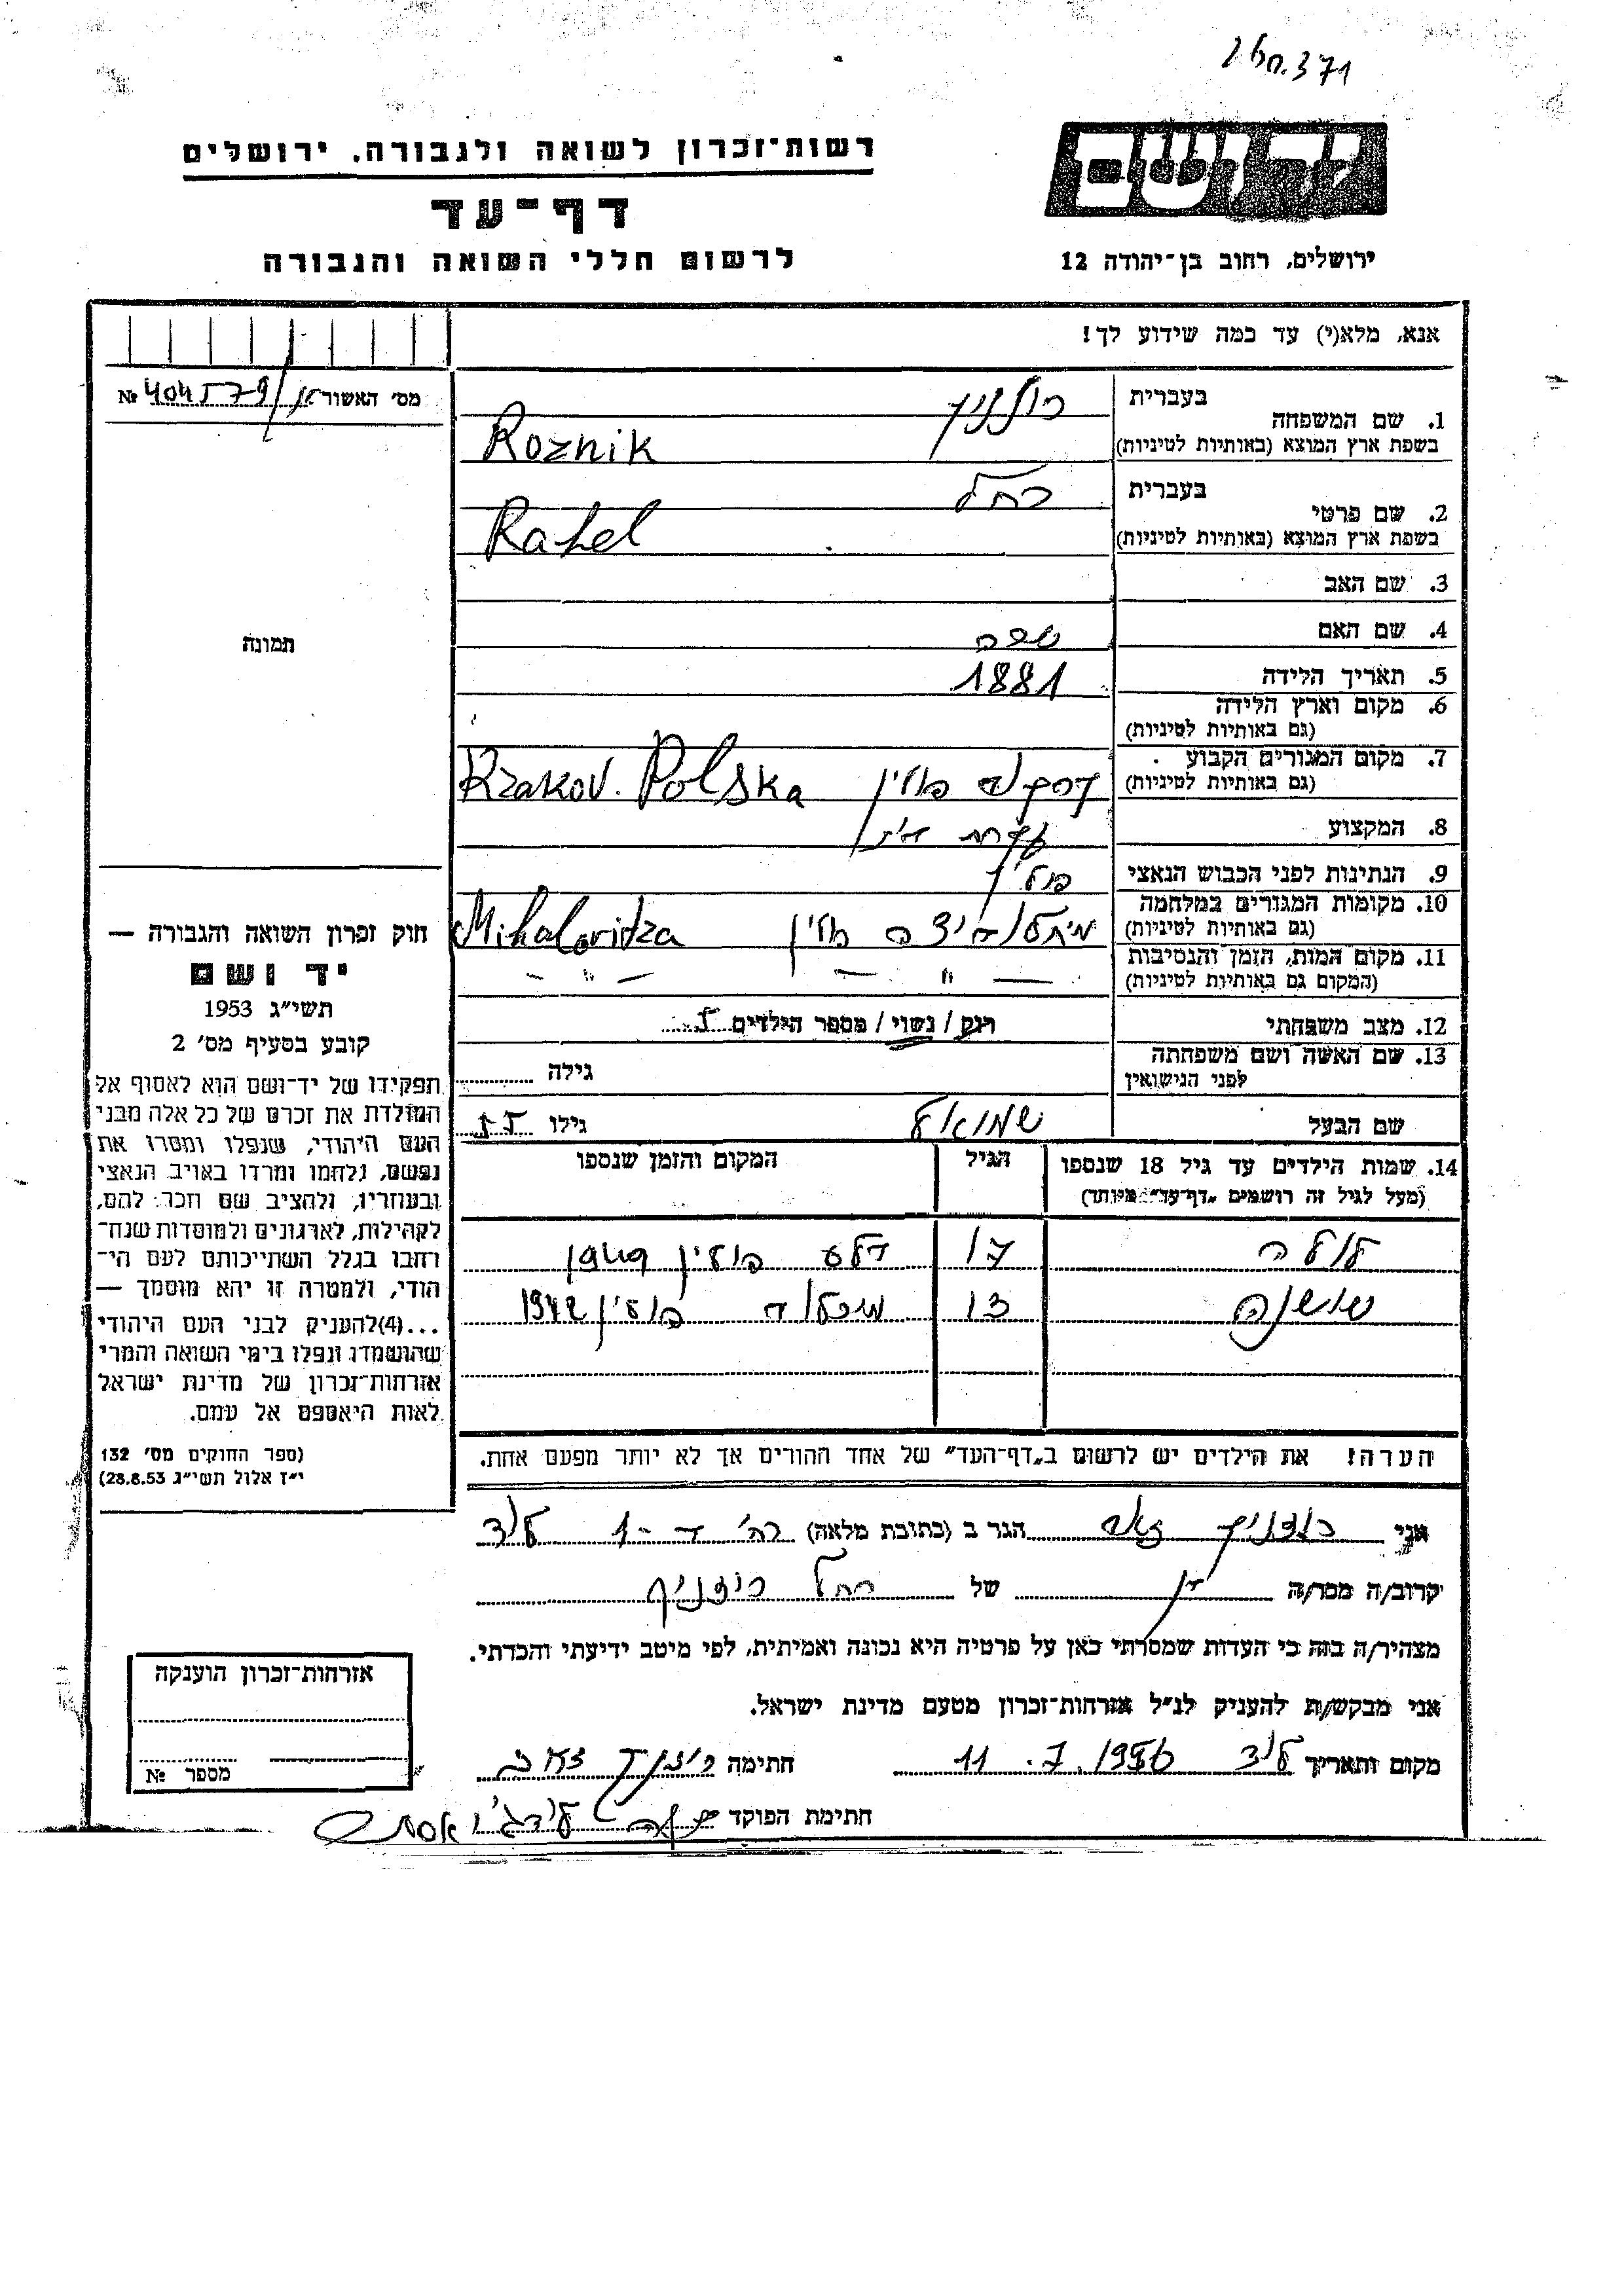 371
רשות־זכרון לשואה ולגבורה, ירושלים
יד ושם
דף־עד
לרשום חללי השואה והגבורה
ירושלים, רחוב בן־יהודה 12
אנא, מלא(י) עד כמה שידוע לך!
מס' האשור
№ 404579
1. שם המשפחה
בעברית
בשפת ארץ המוצא (באותיות לטיניות)
Roznik
2. שם פרטי
בעברית רחל
בשפת ארץ המוצא (באותיות לטיניות)
Rahel
3. שם האב
4. שם האם
5. תאריך הלידה 1881
6. מקום וארץ הלידה
(גם באותיות לטיניות)
7. מקום המגורים הקבוע
(גם באותיות לטיניות)
פולין Krakov. Polska
8. המקצוע עקרת בית
9. הנתינות לפני הכבוש הנאצי פולין
10. מקומות המגורים במלחמה
(גם באותיות לטיניות)
פולין Mihalovidza
11. מקום המות, הזמן והנסיבות
(המקום גם באותיות לטיניות)
— " — — " —
12. מצב משפחתי רוק / נשוי / מספר הילדים 5
13. שם האשה ושם משפחתה
לפני הנישואין
גילה
שם הבעל שמואל גילו 55
14. שמות הילדים עד גיל 18 שנספו
(מעל לגיל זה רושמים „דף־עד" מיוחד)
הגיל
המקום והזמן שנספו
לולה 17 פולין
שושנה 13 פולין 1942
הערה! את הילדים יש לרשום ב„דף־העד" של אחד ההורים אך לא יותר מפעם אחת.
תמונה
חוק זכרון השואה והגבורה —
יד ושם
תשי"ג 1953
קובע בסעיף מס' 2
תפקידו של יד־ושם הוא לאסוף אל
המולדת את זכרם של כל אלה מבני
העם היהודי, שנפלו ומסרו את
נפשם, נלחמו ומרדו באויב הנאצי
ובעוזריו, ולהציב שם וזכר להם,
לקהילות, לארגונים ולמוסדות שנח־
רחבו בגלל השתייכותם לעם הי־
הודי, ולמטרה זו יהא מוסמך —
...(4)להעניק לבני העם היהודי
שהושמדו ונפלו בימי השואה והמרי
אזרחות־זכרון של מדינת ישראל
לאות היאספם אל עמם.
(ספר החוקים מס' 132
י"ז אלול תשי"ג 28.8.53)
אני רוזניק זאב הגר ב (כתובת מלאה) לוד
קרוב/ה מכר/ה בן של רחל רוזניק
מצהיר/ה בזה כי העדות שמסרתי כאן על פרטיה היא נכונה ואמיתית, לפי מיטב ידיעתי והכרתי.
אני מבקש/ת להעניק לנ"ל אזרחות־זכרון מטעם מדינת ישראל.
מקום ותאריך לוד 11.7.1956 חתימה רוזניק זאב
חתימת הפוקד
אזרחות־זכרון הוענקה
מספר №